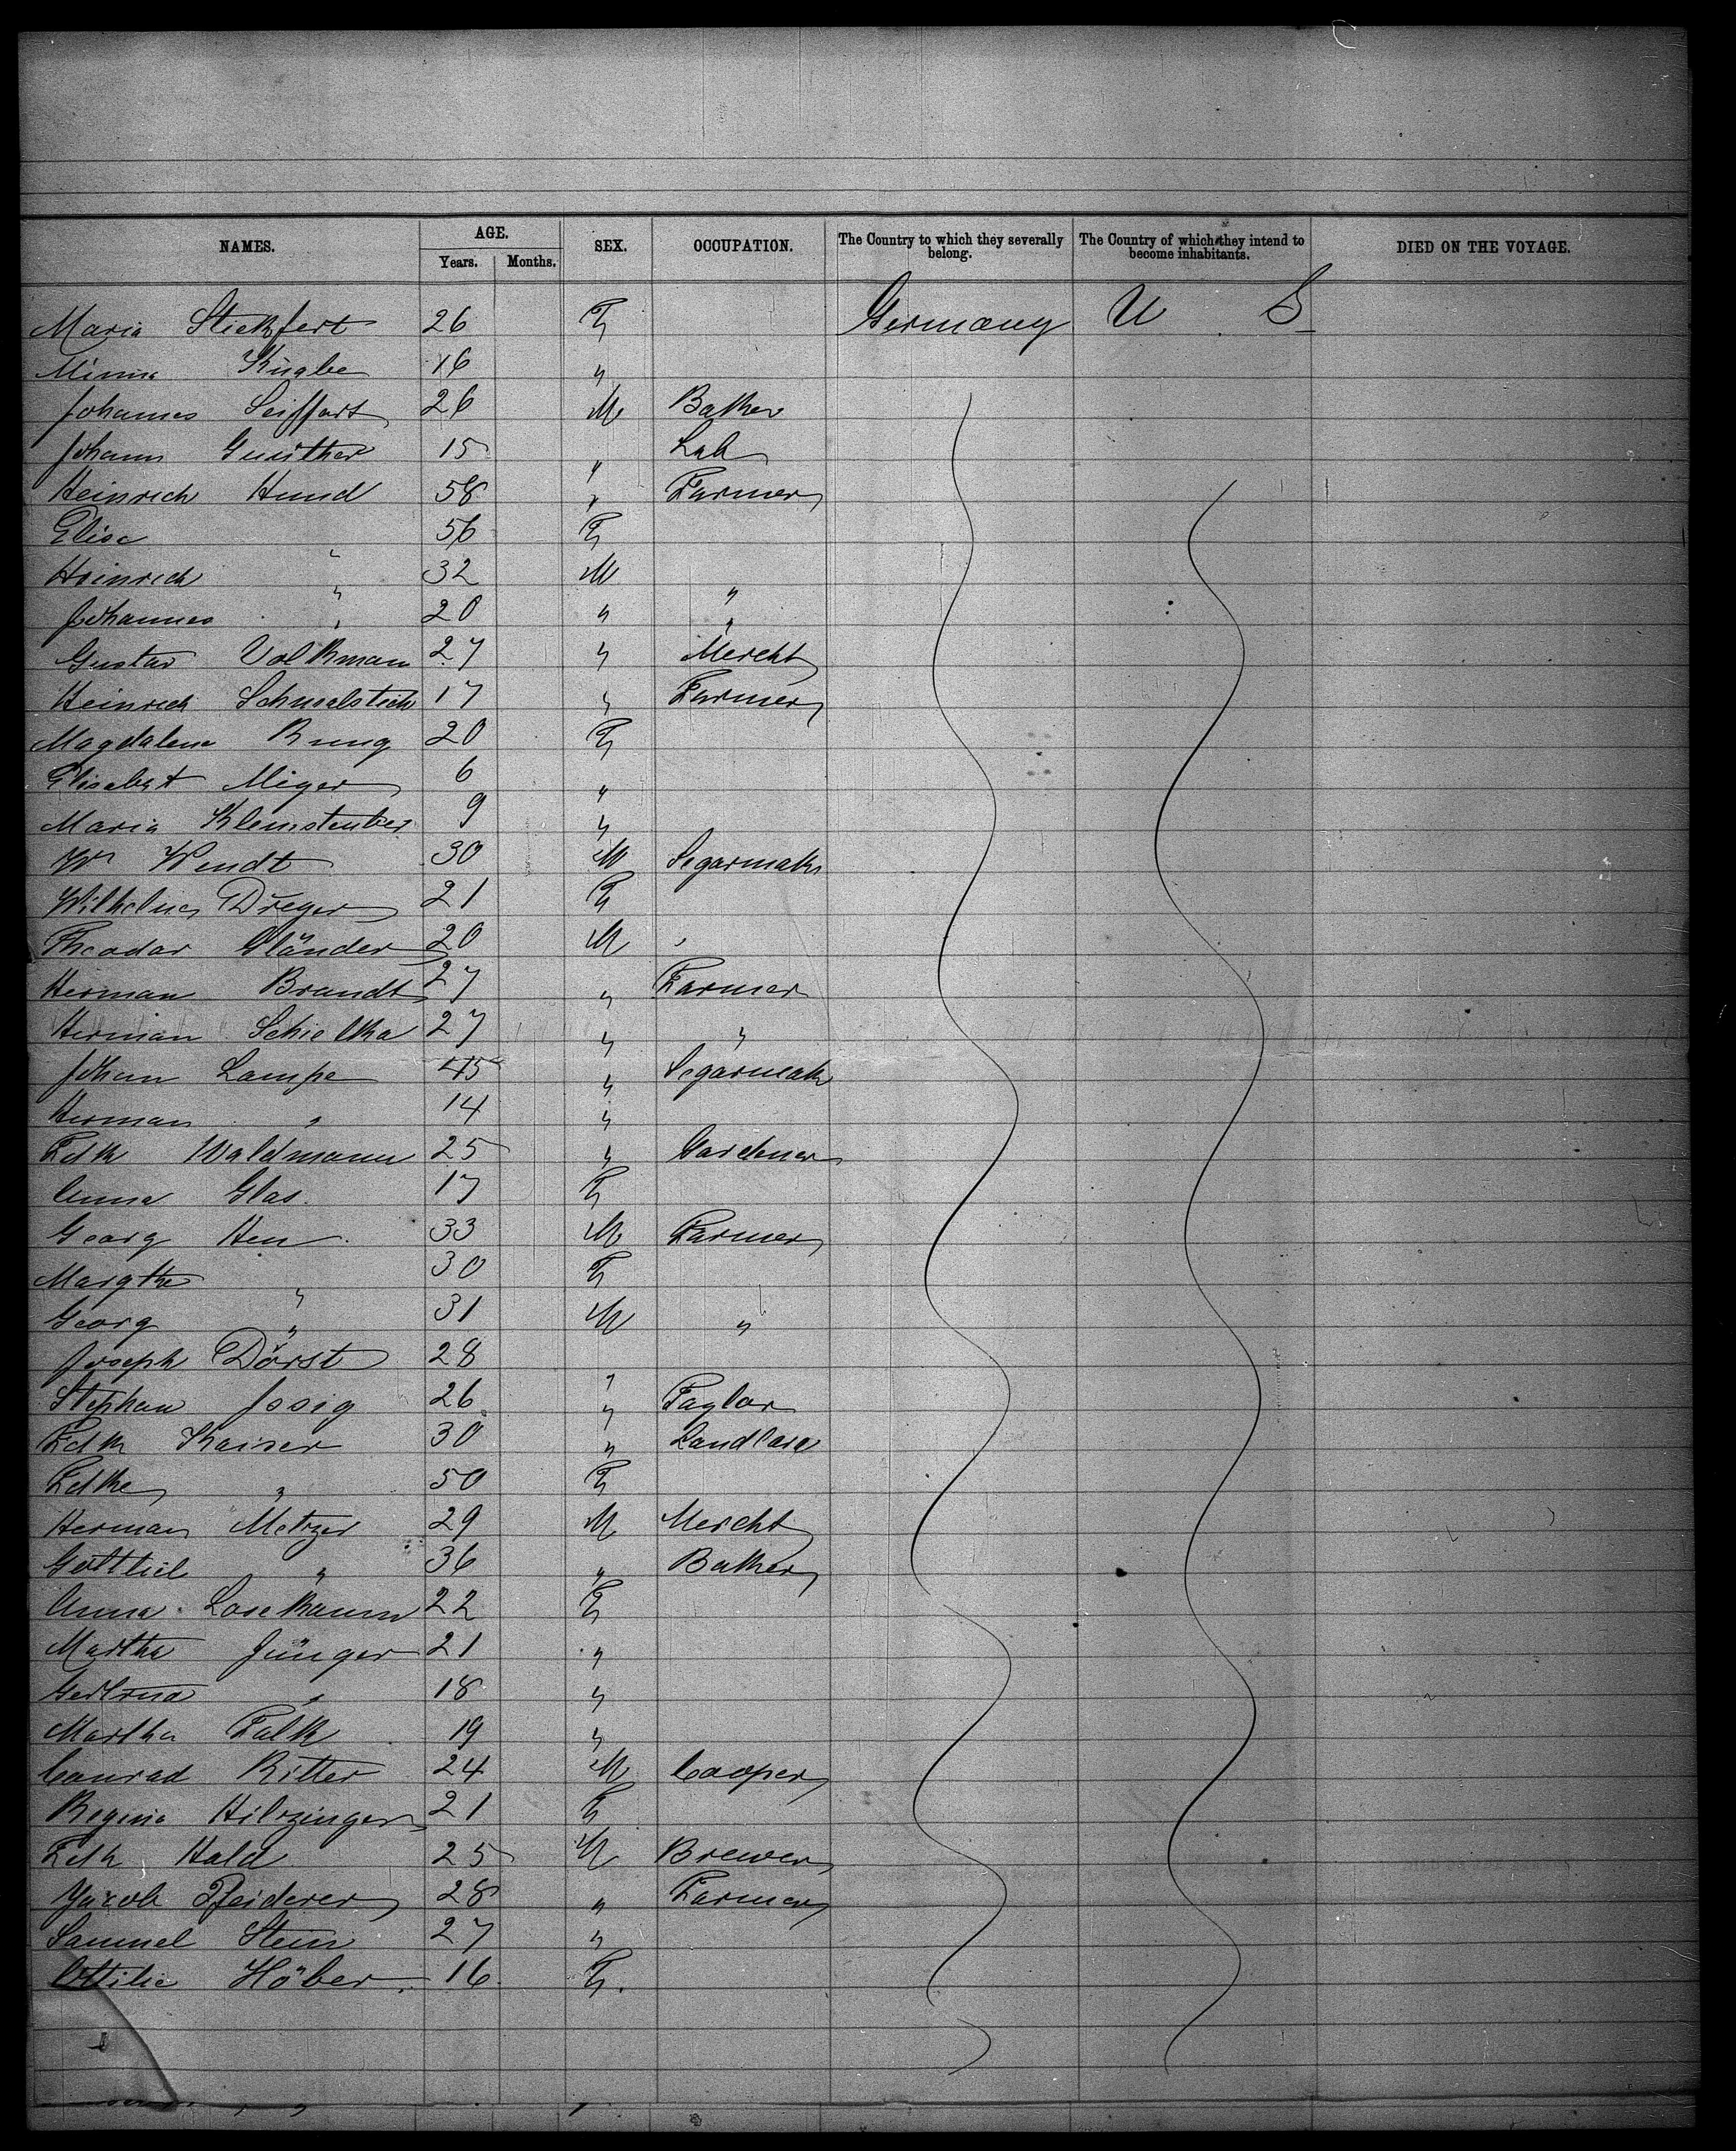 NAMES. AGE. SEX. OCCUPATION. The Country to which they severally belong. The Country of which they intend to become inhabitants. DIED ON THE VOYAGE.
Years. Months.
Maria Stickfert 26 F Germany U S
Minna 16 "
Johannes Seiffart 26 M Baker
Johann Günther 15 " Lab
Heinrich Hund 58 " Farmer
Elise " 56 F
Heinrich " 32 M "
Johannes " 20 " "
Gustav Volkman 27 " Mercht
Heinrich Schmalstich 17 " Farmer
Magdalena Rung 20 F
Elisabet Miger 6 "
Maria Klemstenber 9 "
Wm Wendt 30 M Segarmakr
Wilhelmes Dreger 21 F
Theodor Gländer 20 M "
Herman Brandt 27 " Farmer
Herman Schielka 27 " "
Johan Lampe 45 " Segarmak
Herman " 14 "
Fdk Waldmann 25 " Gardener
Anna Glas. 17 F
Georg Hen 33 M Farmer
Margthe " 30 F
Georg " 31 M "
Joseph Dörst 28 "
Stephan Josig 26 " Taylor
Fdk Kaiser 30 " Landlord
Fdke " 50 F
Herman Metzger 29 M Mercht
Gottlieb " 36 " Baker
Anna Losekamm 22 F
Martha Jünger 21 "
Gertrud " 18 "
Martha Falk 19 "
Conrad Ritter 24 M Cooper
Regina Hilzinger 21 F
Fdk Hald 25 M Brewer
Jacob Pfeiderer 28 " Farmer
Samuel Stein 27 "
Ottilie Höber 16 F.